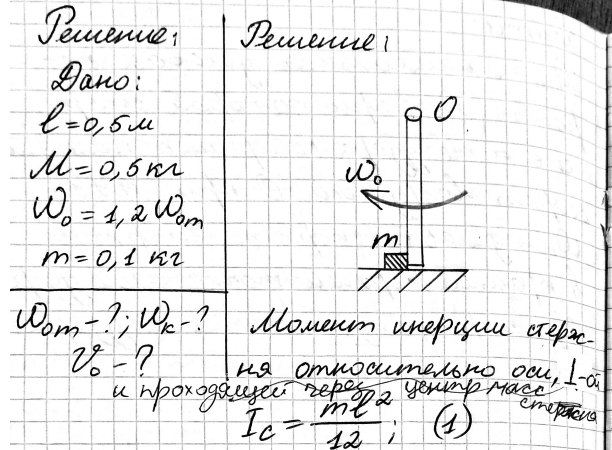 Решение:
Дано:
l = 0,5 м
M = 0,5 кг
ω₀ = 1,2 ω₀m
m = 0,1 кг
ω₀m - ?; ωк - ?
v₀ - ?
Решение:
O
ω₀
m
Момент инерции стерж-
ня относительно оси, ⊥-ой
и проходящей через центр масс
стержня
I_c = ml²/12; (1)